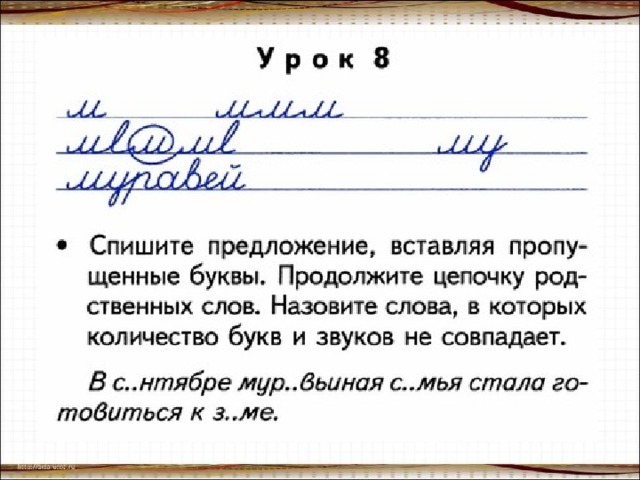 Урок 8
м ммм
мвммв му
муравей
• Спишите предложение, вставляя пропу-
щенные буквы. Продолжите цепочку род-
ственных слов. Назовите слова, в которых
количество букв и звуков не совпадает.
В с..нтябре мур..вьиная с..мья стала го-
товиться к з..ме.